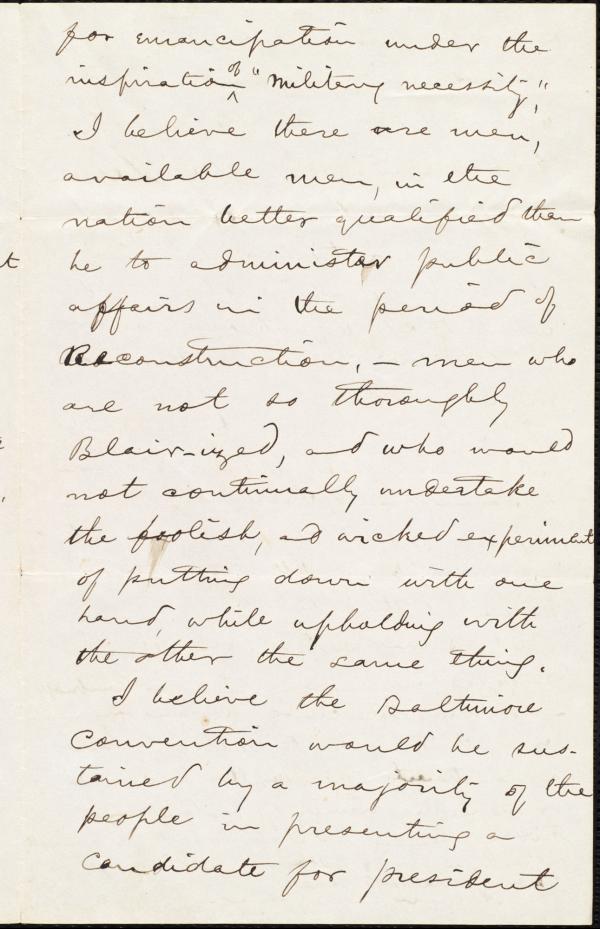 for emancipation under the
inspiration of "military necessity",
I believe there are men,
available men, in the
nation better qualified than
he to administer public
affairs in the period of
Reconstruction, – men who
are not so thoroughly
Blair-ized, and who would
not continually undertake
the foolish, and wicked experiment
of putting down with one
hand, while upholding with
the other the same thing.
I believe the Baltimore
Convention would be sus-
tained by a majority of the
people in presenting a
candidate for president